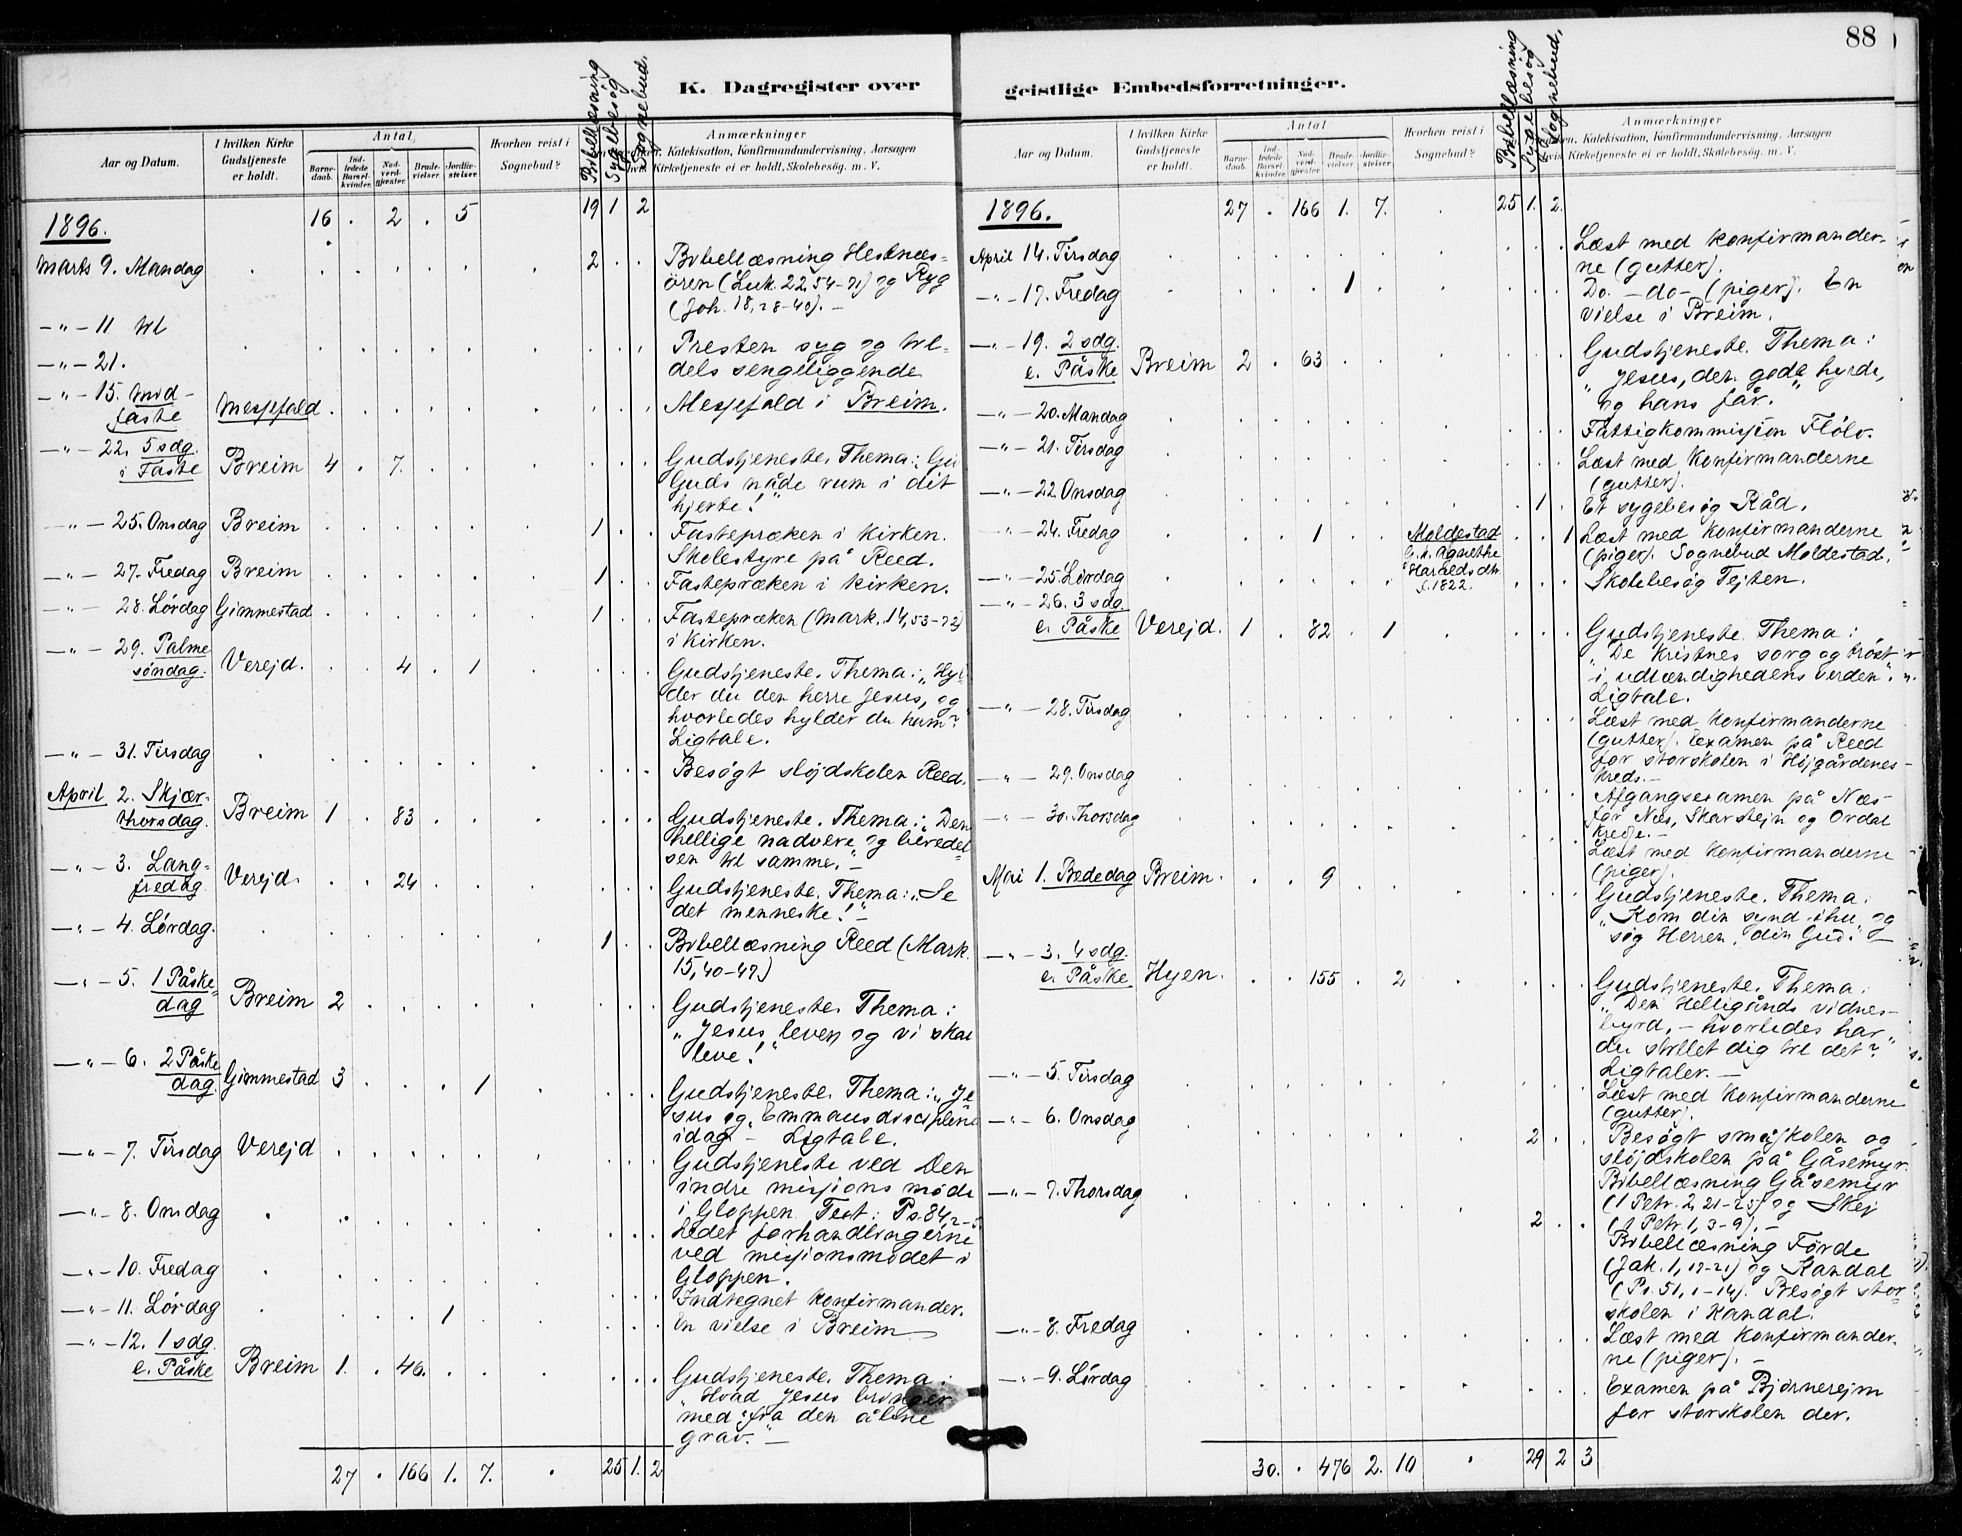 88
K. Dagregister over
geistlige Embedsforretninger.
Aar og Datum.
I hvilken Kirke
Gudstjeneste
er holdt.
Antal
Barne-
daab.
Ind-
ledede
Barsel-
kvinder.
Nad-
verd-
gjæster
Brude-
vielser.
Jordfæ-
stelser.
Hvorhen reist i
Sognebud?
Bibellæsning
Sygebesøg
Sognebud.
Anmærkninger
Katekisation, Konfirmandundervisning. Aarsagen
hvis Kirketjeneste ei er holdt, Skolebesøg. m. V.
1896. 16 . 2 . 5 19 1 2
Marts 9. Mandag 2 Bibellæsning Hestnæs-
ören (Luk. 22,54-71) og Ryg
(Joh. 18,28-40). -
-"- 11 til
-"- 21. Presten syg og til-
dels sengeliggende
-"- 15. Mid-
faste Messefald Messefald i Breim.
-"- 22. 5 sdg.
i Faste Breim 4 . 7. Gudstjeneste. Thema: "Gi
Guds nåde rum i dit
hjerte!"
-"- 25. Onsdag Breim 1 Fastepræken i kirken.
Skolestyre på Reed.
-"- 27. Fredag Breim 1 Fastepræken i kirken.
-"- 28. Lørdag Gimmestad 1 Fastepræken (Mark. 14,53-72)
i kirken.
-"- 29. Palme
søndag. Verejd. 4 . 1 Gudstjeneste. Thema: "Hyl-
der du den herre Jesus, og
hvorledes hylder du ham?"
Ligtale.
-"- 31. Tirsdag Besøgt sløjdskolen Reed.
April 2. Skjær-
thorsdag. Breim 1 . 83 Gudstjeneste. Thema: "Den
hellige nadvere og beredel-
sen til samme."
-"- 3. Lang-
fredag. Verejd. 24 Gudstjeneste. Thema: "Se
det menneske!" -
-"- 4. Lørdag. 1 Bibellæsning Reed (Mark.
15,40-47)
-"- 5. 1 Påske-
dag Breim 2 Gudstjeneste. Thema:
"Jesus lever, og vi skal
leve!"
-"- 6. 2 Påske
dag. Gimmestad 3 1 Gudstjeneste. Thema: "Je
sus og Emmausdisciplene
idag - Ligtale.
-"- 7. Tirsdag Verejd Gudstjeneste ved Den
indre missions møde
i Gloppen. Text: Ps. 84,2-5.
-"- 8. Onsdag Ledet forhandlingerne
ved missionsmødet i
Gloppen.
-"- 10. Fredag Indtegnet konfirmander.
-"- 11. Lørdag 1 En vielse i Breim
-"- 12. 1 sdg.
e. Påske Breim 1. . 46. Gudstjeneste. Thema:
"Hvad Jesus bringer
med fra den åbne
grav." -
27 . 166 1. 7. . 25 1. 2
Aar og Datum.
I hvilken Kirke
Gudstjeneste
er holdt.
Antal
Barne-
daab.
Ind-
ledede
Barsel-
kvinder.
Nad-
verd-
gjæster
Brude-
vielser.
Jordfæ-
stelser.
Hvorhen reist i
Sognebud?
Bibellæsning
Sygebesøg
Sognebud.
Anmærkninger
Katekisation, Konfirmandundervisning. Aarsagen
hvis Kirketjeneste ei er holdt, Skolebesøg. m. V.
1896. 27 . 166 1. 7. . 25 1. 2.
April 14. Tirsdag Læst med konfirmander-
ne (gutter).
-"- 17. Fredag 1 Do. - do - (piger). En
vielse i Breim.
-"- 19. 2 sdg.
e. Påske Breim 2 . 63 Gudstjeneste. Thema:
"Jesus, den gode hyrde,
og hans får."
-"- 20. Mandag Fattigkommission Fløtv.
-"- 21. Tirsdag Læst med Konfirmanderne
(gutter).
-"- 22. Onsdag 1 Et sygebesøg Råd.
-"- 24. Fredag 1 Moldestad 1 Læst med Konfirmanderne
Agnethe
Haraldsdtr.
f. 1822.
(piger). Sognebud Moldestad.
-"- 25. Lørdag Skolebesøg Tejten.
-"- 26. 3 sdg.
e. Påske Verejd. 1 . 82 . 1 Gudstjeneste. Thema:
"De kristnes sorg og trøst
i udlændighedens verden".
Ligtale.
-"- 28. Tirsdag Læst med Konfirmanderne
(gutter). Examen på Reed
for storskolen i Højgårdenes
kreds. -
-"- 29. Onsdag Afgangsexamen på Næs
for Næs, Skarstejn og Ordal
kredse. -
-"- 30. Thorsdag Læst med konfirmanderne
(piger).
Mai 1. Bededag Breim. 9 Gudstjeneste. Thema:
"Kom din synd ihu, og
søg Herren, din Gud." -
-"- 3. 4 sdg.
e. Påske Hyen. 155 . 2 Gudstjeneste. Thema:
"Den Helligånds vidnes-
byrd, - hvorledes har
du stillet dig til det?"
Ligtaler. -
-"- 5. Tirsdag Læst med Konfirmanderne
(gutter).
-"- 6. Onsdag 2 Besøgt småskolen og
sløjdskolen på Gåsemyr.
Bibellæsning Gåsemyr
(1 Petr. 2, 21-25) og Skej
(1 Petr. 1, 3-9). -
-"- 7. Thorsdag 2 Bibellæsning Førde
(Jak. 1, 17-21) og Kandal
(Ps. 51, 1-14). Besøgt stor-
skolen i Kandal.
-"- 8. Fredag Læst med Konfirmander-
ne (piger). -
-"- 9. Lørdag Examen på Bjørnerejm
for storskolen der.
30. . 476 2. 10 . 29 2 3